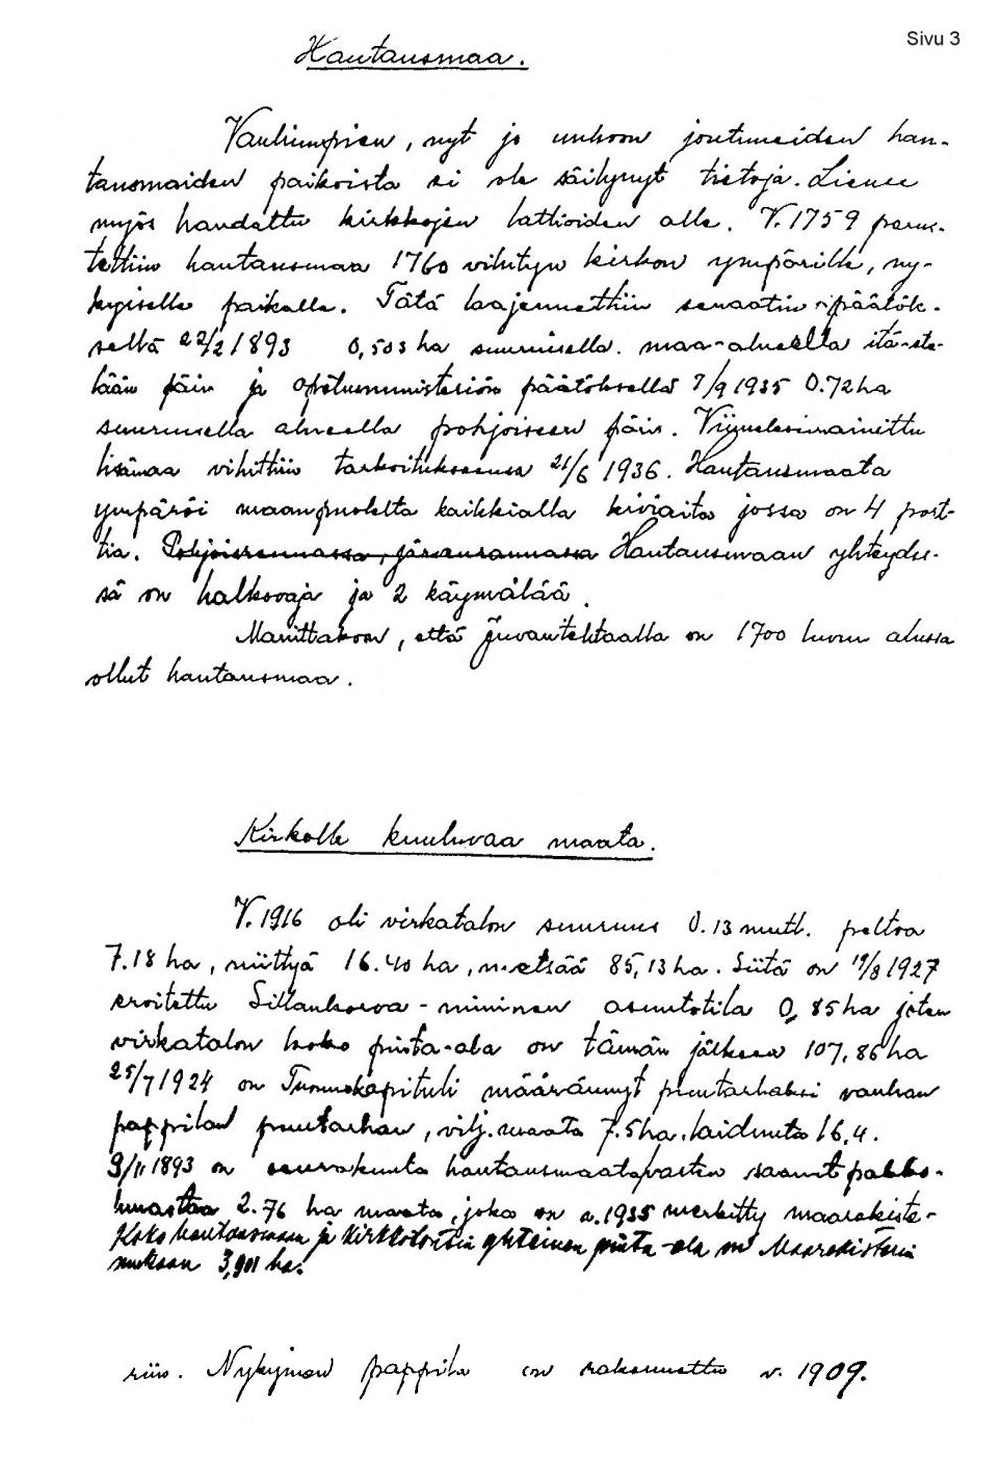 Sivu 3
Hautausmaa.
Vanhimpien, nyt jo unhoon joutuneiden hau-
tausmaiden paikoista ei ole säilynyt tietoja. Lienee
myös haudattu kirkkojen lattioiden alle. V. 1759 perus-
tettiin hautausmaa 1760 vihityn kirkon ympärille, ny-
kyiselle paikalle. Tätä laajennettiin senaatin päätök-
sellä 22/2 1893 0,503 ha suuruisella maa-alueella itä-ete-
lään päin ja Opetusministeriön päätöksellä 7/9 1935 0.72 ha
suuruisella alueella pohjoiseen päin. Viimeksimainittu
lisämaa vihittiin tarkoitukseensa 21/6 1936. Hautausmaata
ympäröi maanpuolelta kaikkialla kiviaita jossa on 4 port-
tia. Pohjoisrannassa, järvenrannassa Hautausmaan yhteydes-
sä on halkovaja ja 2 käymälää.
Mainittakoon, että Juvantehtaalla on 1700 luvun alussa
ollut hautausmaa.
Kirkolle kuuluvaa maata.
V. 1916 oli virkatalon suuruus 0.13 mutl. peltoa
7.18 ha, niittyä 16.40 ha, metsää 85,13 ha. Siitä on 19/8 1927
eroitettu Sillankorva-niminen asuntotila 0,85 ha joten
virkatalon koko pinta-ala on tämän jälkeen 107,86 ha
25/7 1924 on Tuomiokapituli määrännyt puutarhaksi vanhan
pappilan puutarhan, vilj. maata 7.5 ha. laidunta 16,4.
9/11 1893 on seurakunta hautausmaata varten saanut pakko-
lunastaa 2.76 ha maata, joka on v. 1935 merkitty maarekiste-
Koko hautausmaan ja kirkkotontin yhteinen pinta-ala on Maarekisterin
mukaan 3,901 ha.
riin. Nykyinen pappila on rakennettu v. 1909.